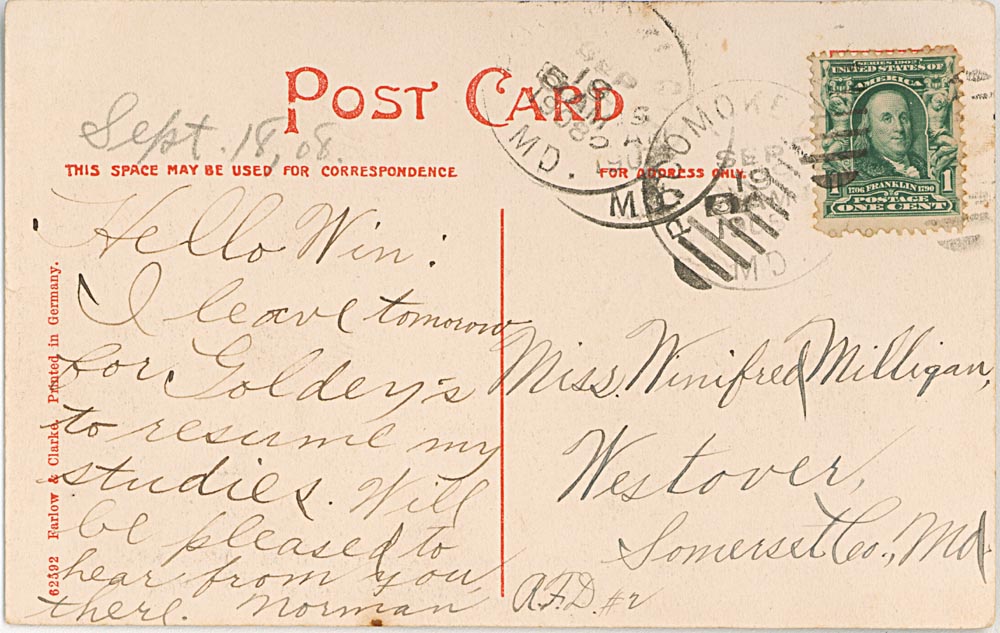 POST CARD
Sept. 18, 08.
THIS SPACE MAY BE USED FOR CORRESPONDENCE
FOR ADDRESS ONLY.
Hello Win:
I leave tomorow
for Goldey's
to resume my
studies. Will
be pleased to
hear from you
there. Norman
Miss. Winifred Milligan,
Westover,
Somerset Co., Md.
R.F.D. #2
62592 Farlow & Clarke. Printed in Germany.
SEP
MD.
1908
POCOMOKE
SEP
19
MD.
SERIES 1902
UNITED STATES OF
AMERICA
1706 FRANKLIN 1790
1 POSTAGE 1
ONE CENT